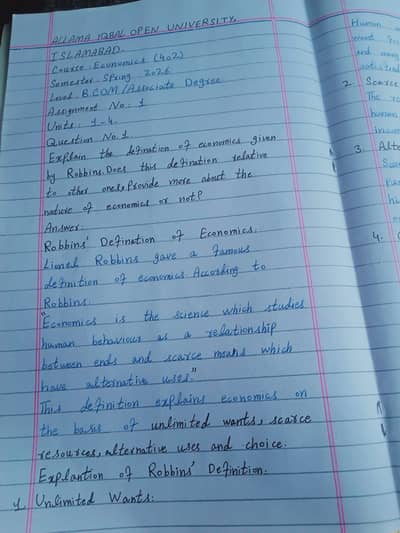 ALLAMA IQBAL OPEN UNIVERSITY
ISLAMABAD.
Course: Economics (402)
Semester: Spring 2026
Level: B.COM/Associate Degree
Assignment No: 1
Units: 1-4.
Question No. 1
Explain the defination of economics given
by Robbins. Does this defination relative
to other ones, Provide more about the
nature of economics or not?
Answer
Robbins' Defination of Economics.
Lionel Robbins gave a famous
definition of economics. According to
Robbins.
"Economics is the science which studies
human behaviour as a relationship
between ends and scarce means which
have alternative uses."
This definition explains economics on
the basis of unlimited wants, scarce
resources, alternative uses and choice.
Explantion of Robbins' Definition.
1. Unlimited Wants:
Human
and
2. Scarce
The
human
3. Alte
4.